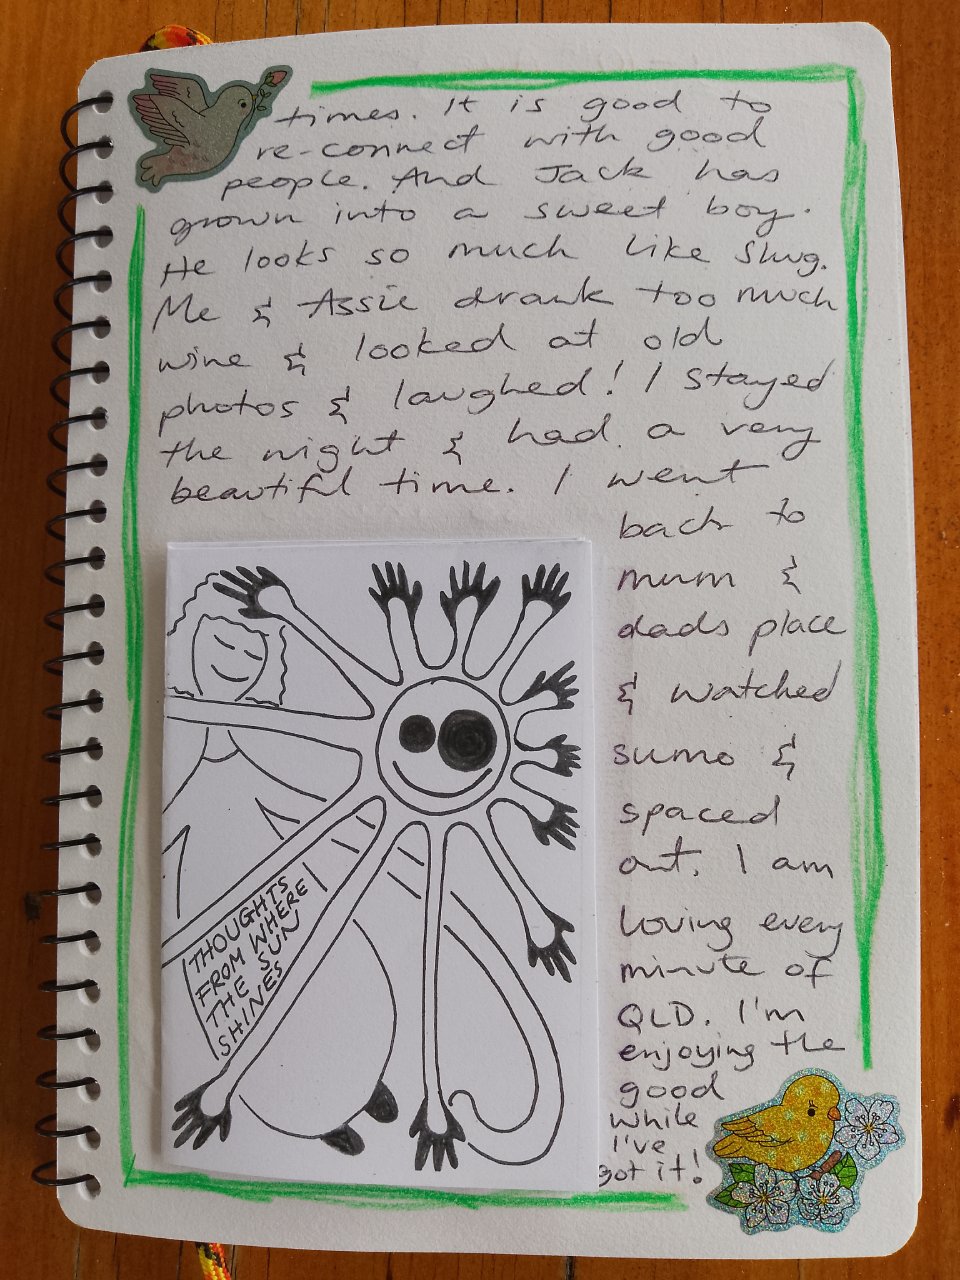 times. It is good to
re-connect with good
people. And Jack has
grown into a sweet boy.
He looks so much like Slug.
Me & Assie drank too much
wine & looked at old
photos & laughed! I stayed
the night & had a very
beautiful time. I went
back to
mum &
dads place
& watched
sumo &
spaced
out. I am
loving every
minute of
QLD. I'm
enjoying the
good
while
I've
got it!
THOUGHTS
FROM WHERE
THE SUN
SHINES